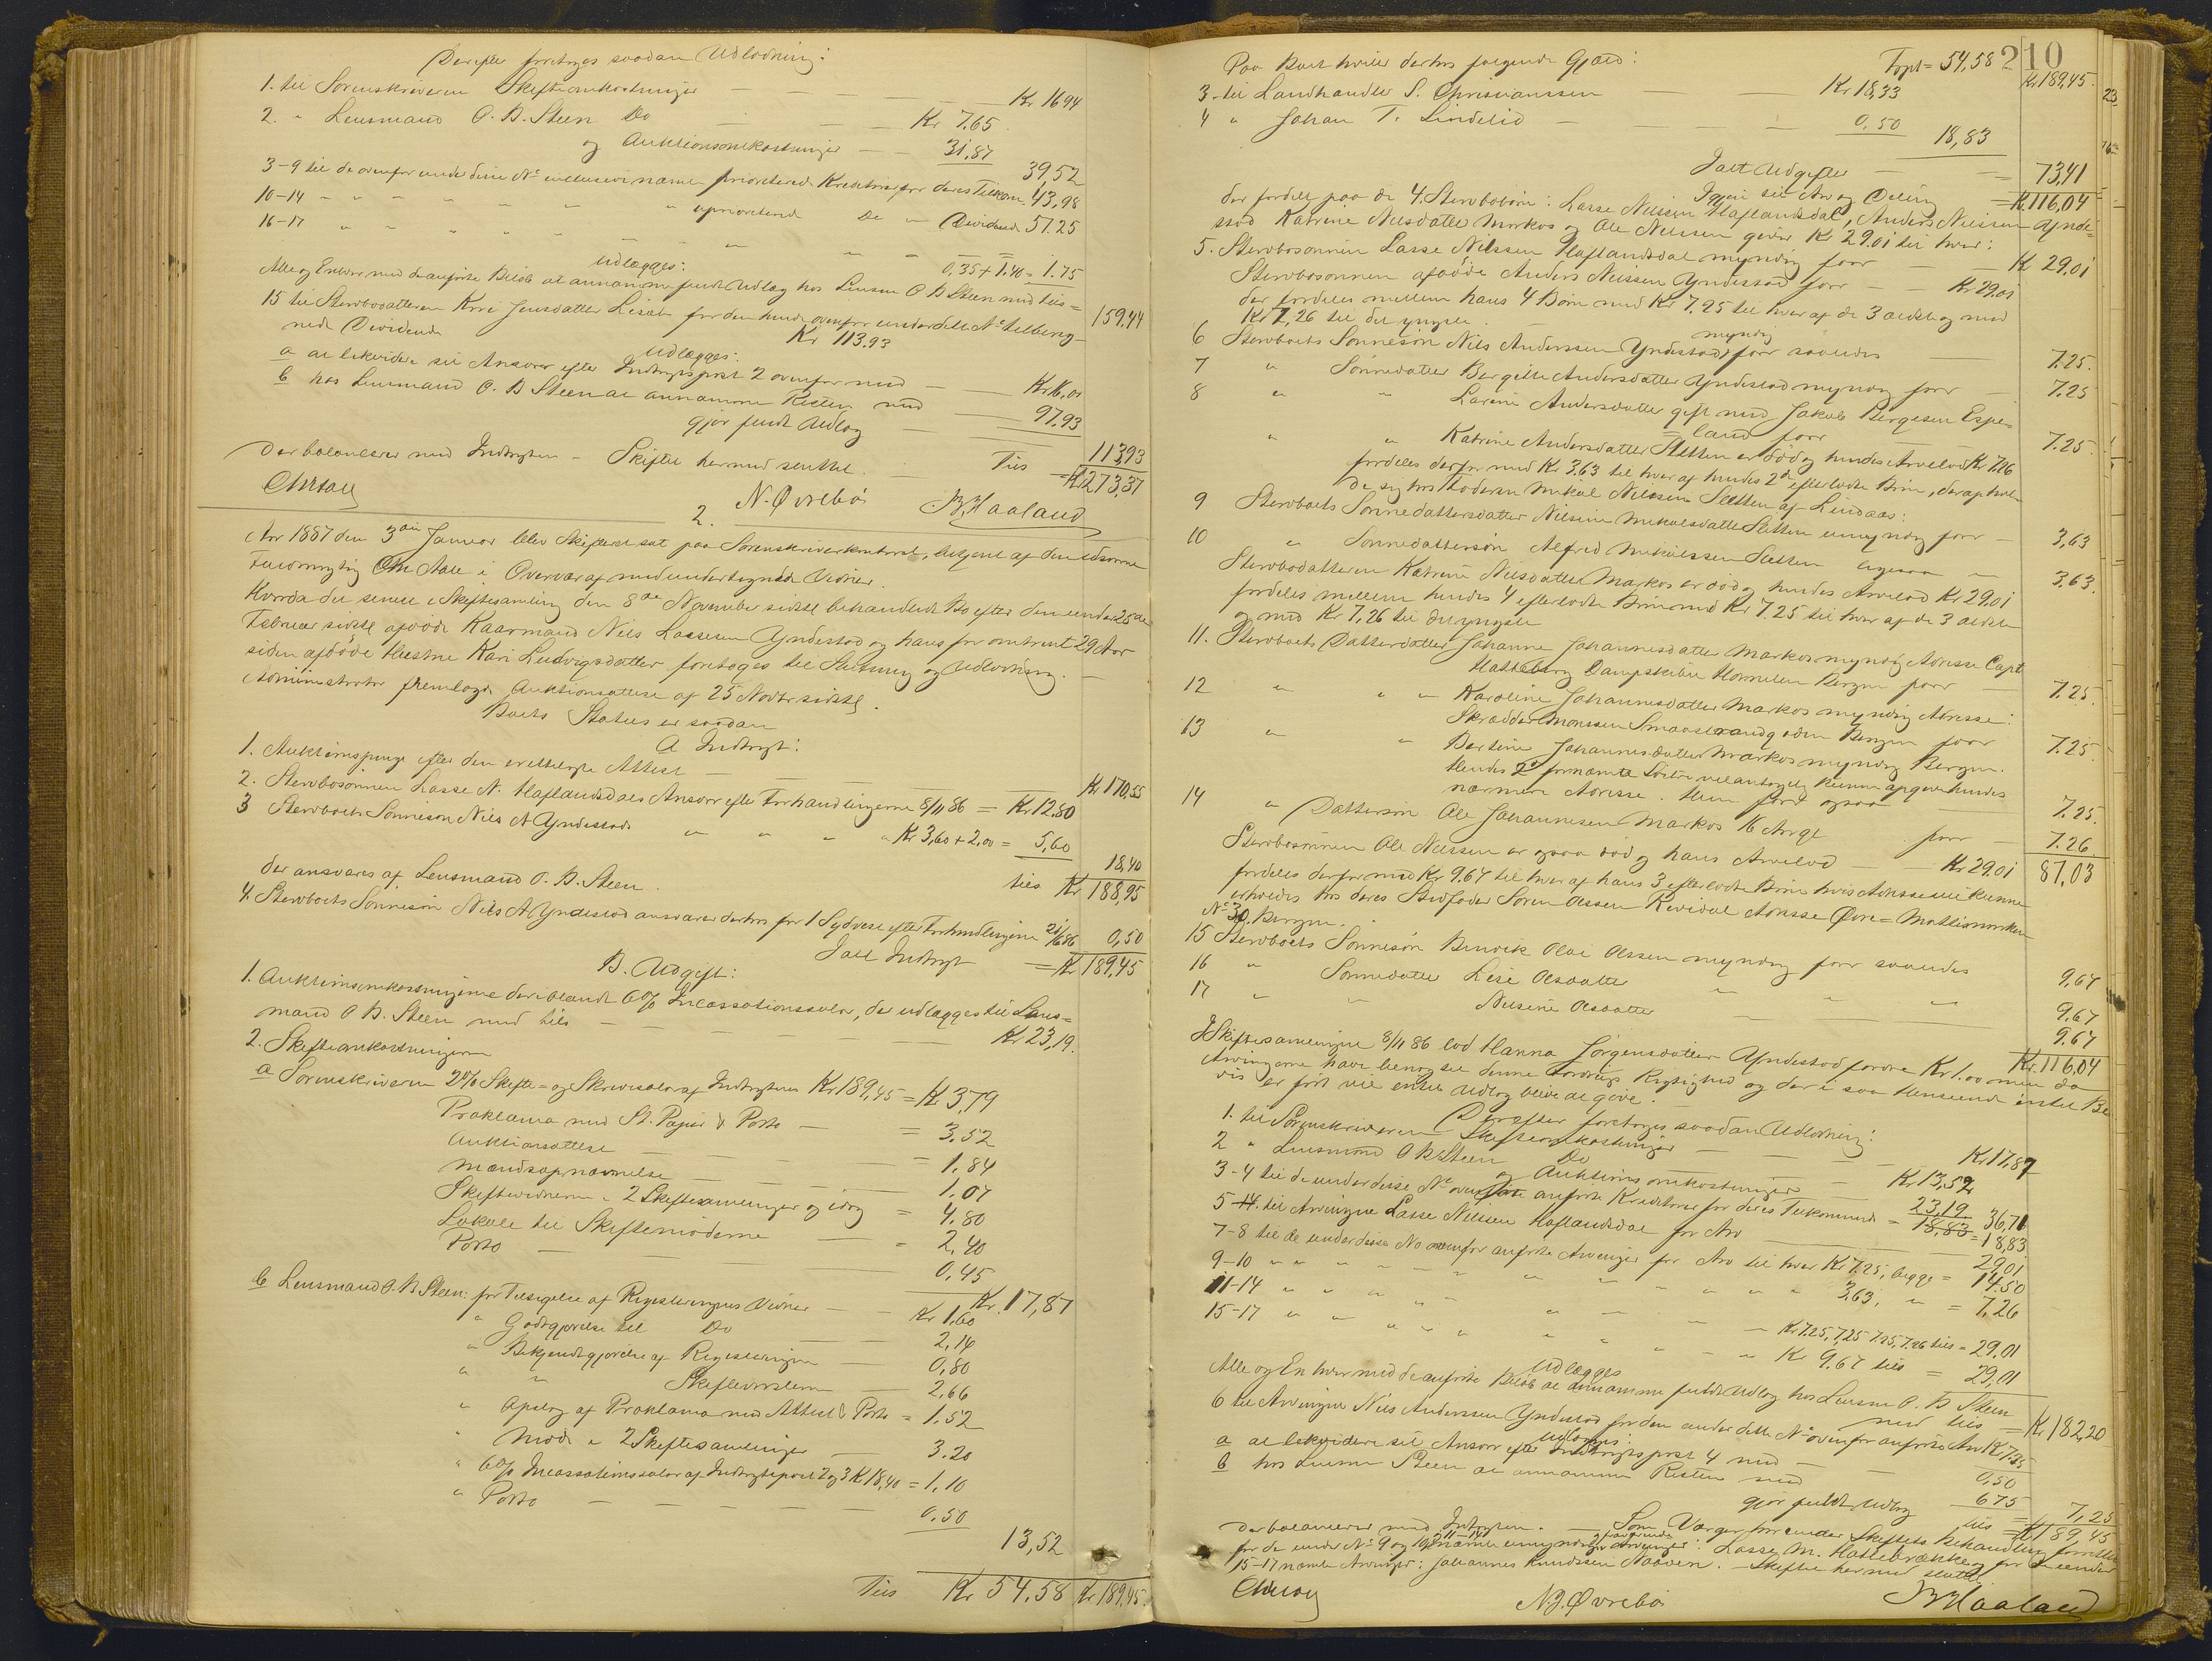 Derefter foretoges saadan Udlodning:
1. til Sorenskriveren Skifteomkostninger — — — Kr 16 94
2. " Lensmand O. B. Steen Do — — Kr 7.65
og Auktionsomkostninger — — 31.87
39,52
3-9 til de ovenfor under disse No prioriterede Kreditorer for deres Tilkom. 43,98
10-14 " " " " " " uprioriterede Do " Dividende 57.25
16-17 " " " " " " 0,35 + 1.40 = 1.75
Udlægges:
Alle og Enhver med de anførte Beløb at annamme fuldt Udlæg hos Lensm O B Steen med tils = 159,44
15 til Stervbodatteren Kari Jensdatter for den hende ovenfor under dette No tilberegnede
Dividende Kr 113.93
Udlægges:
a at likvidere sit Ansvar efter Indtægtspost 2 ovenfor med — Kr 16,01
b hos Lensmand O. B Steen at annamme Resten med — 97.93
gjør fuldt Udlæg — 113,93
Der balancerer med Indtægten – Skiftet hermed sluttet. Tils = Kr 273,37
N. Øvrebø B. Haaland
2.
Aar 1887 den 3die Januar blev Skifteret sat paa Sorenskriverkontoret, betjent af den edsvorne
Fuldmægtig Chr Aall i Overvær af medundertegnede Vidner.
Hvorda det senest i Skiftesamling den 8de November sidstl behandlede Bo efter den under 25de
Februar sidstl afdøde Kaarmand Nils Lassesen Yndestad og hans for omtrent 29 Aar
siden afdøde Hustru Kari Ludvigsdatter foretoges til Slutning og Udlodning. —
Administrator fremlagde Auktionsattest af 25 Novbr sidstl.
Boets Status er saadan
A Indtægt:
1. Auktionspenge efter den erettelagte Attest — — Kr 170,55
2. Stervbosønnen Lasse N. Haflandsdals Ansvar efter Forhandlingerne 8/11 86 = Kr 12.80
3 Stervboets Sønnesøn Nils A Yndestads " " " " Kr 3,60 + 2,00 = 5,60
18,40
der ansvares af Lensmand O. B. Steen. tils Kr 188,95
4. Stervboets Sønnesøn Nils A Yndestad ansvarer derhos for 1 Sydvest efter Forhandlingerne 0,50
Ialt Indtægt = Kr 189,45
B. Udgift:
1. Auktionsomkostningerne deriblandt 6% Incassationssalar, der udlægges til Lens=
mand O B. Steen med tils — — — Kr 23,19.
2. Skifteomkostningerne
a Sorenskriveren 2% Skifte= og Skriversalar af Indtægten Kr 189,45 = Kr 3,79
Proklama med St. Papir & Porto — = 3,52
Auktionsattest — — = 1,84
Mændsopnævnelse — — 1,07
Skiftevidnerne i 2 Skiftesamlinger og idag = 4,80
Lokale til Skiftemøderne — = 2,40
Porto — — 0,45
Kr. 17,87
b Lensmand O. B Steen: for Tilsigelse af Registrerings Vidner — Kr 1,60
" Godtgjørelse til Do — 2,14
" Bekjendtgjørelse af Registreringen — 0,80
" " Skifteudstedelsen — 2,66
" Opslag af Proklama med Attest & Porto = 1,52
" Møde i 2 Skiftesamlinger — 3.20
" 6% Incassationssalar af Indtægtspost 2 og 3 Kr 18,40 = 1,10
" Porto — — — 0.50
13,52
Tils Kr 54,58 Kr 189,45.
210
Fopt = 54,58 Kr 189,45.
Paa Boet hviler derhos følgende Gjæld:
3. til Landhandler S. Christianssen — — Kr 18,33
4 " Johan T. Lindelid — — 0,50
18,83
Ialt Udgifter — = 73,41
Igjen til Arv og Deling = Kr. 116,04
der fordelt paa de 4 Stervbobørn: Lasse Nilssen Haflandsdal, Anders Nilssen Ynde=
stad Katrine Nilsdatter Markos og Ole Nilssen gjør Kr 29.01 til hver:
5. Stervbosønnen Lasse Nilssen Haflandsdal myndig faar — — Kr 29,01
Stervbosønnen afdøde Anders Nilssen Yndestad faar — — Kr 29.01
der fordeles mellem hans 4 Børn med Kr 7.25 til hver af de 3 ældste og med
Kr 7,26 til det yngste.
6 Stervboets Sønnesøn Nils Anderssen Yndestad, myndig faar saaledes — 7.25.
7 " Sønnedatter Bergitte Andersdatter Yndestad myndig faar — 7.25
8 " " Larine Andersdatter gift med Jakob Børgesen Espe=
land faar — — 7.25.
" " Katrine Andersdatter Sletten er død og hendes Arvelod Kr 7.26
fordeles derfor med Kr 3,63 til hver af hendes 2de efterladte Børn, der op hol=
de sig hos Faderen Mikal Nilssen Sletten af Lindaas:
9 Stervboets Sønnedattersdatter Nilsine Mikalsdatter Sletten umyndig faar — 3,63
10 " Sønnedattersøn Alfred Mikalssen Sletten ligesaa " 3,63.
Stervbodatteren Katrine Nilsdatter Markos er død og hendes Arvelod Kr 29.01
fordeles mellem hendes 4 efterladte Børn med Kr 7.25 til hver af de 3 ældste
og med Kr 7,26 til det yngste
11. Stervboets Datterdatter Johanne Johannesdatter Markos myndig Adresse Capt
Hatteberg Dampskibet Hornelen Bergen faar — 7.25.
12 " " " Karoline Johannesdatter Markos myndig Adresse:
Skrædder Monssen Bergen faar 7.25.
13 " " Bertine Johannesdatter Markos myndig Bergen.
Hendes 2de fornævnte Søstre vil antagelig kunne opgive hendes
nærmere Adresse. Hun faar ogsaa — 7.25.
14 " Dattersøn Ole Johannesen Markos 16 Aar gl faar — 7.26
Stervbosønnen Ole Nilssen er ogsaa død og hans Arvelod — Kr 29.01 87,03
fordeles derfor med Kr 9.67 til hver af hans 3 efterladte Børn hvis Adresse vil kunne
erholdes hos deres Stedfader Søren Olssen Adresse Øvre=
No 30, Bergen.
15 Stervboets Sønnesøn Benoik Olai Olssen myndig faar saaledes 9,67
16 " Sønnedatter Lise Olsdatter " " " 9.67
17 " " Nilsine Olsdatter 9.67
Kr. 116,04
I Skiftesamlingen 8/11 86 lod Hanna Jørgensdatter Yndestad fordre Kr 1.00 men da
Arvingerne have benegtet denne Fordrings Rigtighed og der i saa Henseende intet Be
vis er ført vil intet Udlæg blive at give.
Derefter foretoges saadan Udlodning:
1. til Sorenskriveren Skifteomkostninger — — Kr 17,87
2 " Lensmand O B Steen Do — — Kr 13,52
og Auktionsomkostninger — 23,19 36,71
3-4 til de under disse No ovenfor anførte Kreditorer for deres Tilkommende = 18,83 = 18,83
5 til Arvingen Lasse Nilssen Haflandsdal for Arv — 29.01
7-8 til de under disse No ovenfor anførte Arvinger for Arv til hver Kr 7.25, begge = 14.50
9-10 " " " " " " " " " 3,63, " = 7,26
11-14 " " " " " " Kr 7.25, 7,25 7.25, 7.26 tils = 29.01
15-17 " " " " " " Kr 9.67 tils = 29,01
Udlægges
Alle og Enhver med de anførte Beløb at annamme fuldt Udlæg hos Lensm O. B Steen
med tils = Kr 182,20
6 til Arvingen Nils Anderssen Yndestad for den under dette No ovenfor anførte Arv Kr 7.25
Udlægges:
a at likvidere sit Ansvar efter Indtægtspost 4 med — 0,50
b hos Lensm Steen at annamme Resten med — 6.75
gjør fuldt Udlæg 7,25
tils = Kr 189,45
Der balancerer med Indtægten. — Som Værger under Skiftets Behandling
for de under No 9 og 10, 11-14 nævnte umyndige Arvinger: Lasse M. Hallebrække og for de under
15-17 nævnte Arvinger: Johannes Knudssen Naaven. – Skiftet hermed sluttet.
N. J. Øvrebø B Haaland